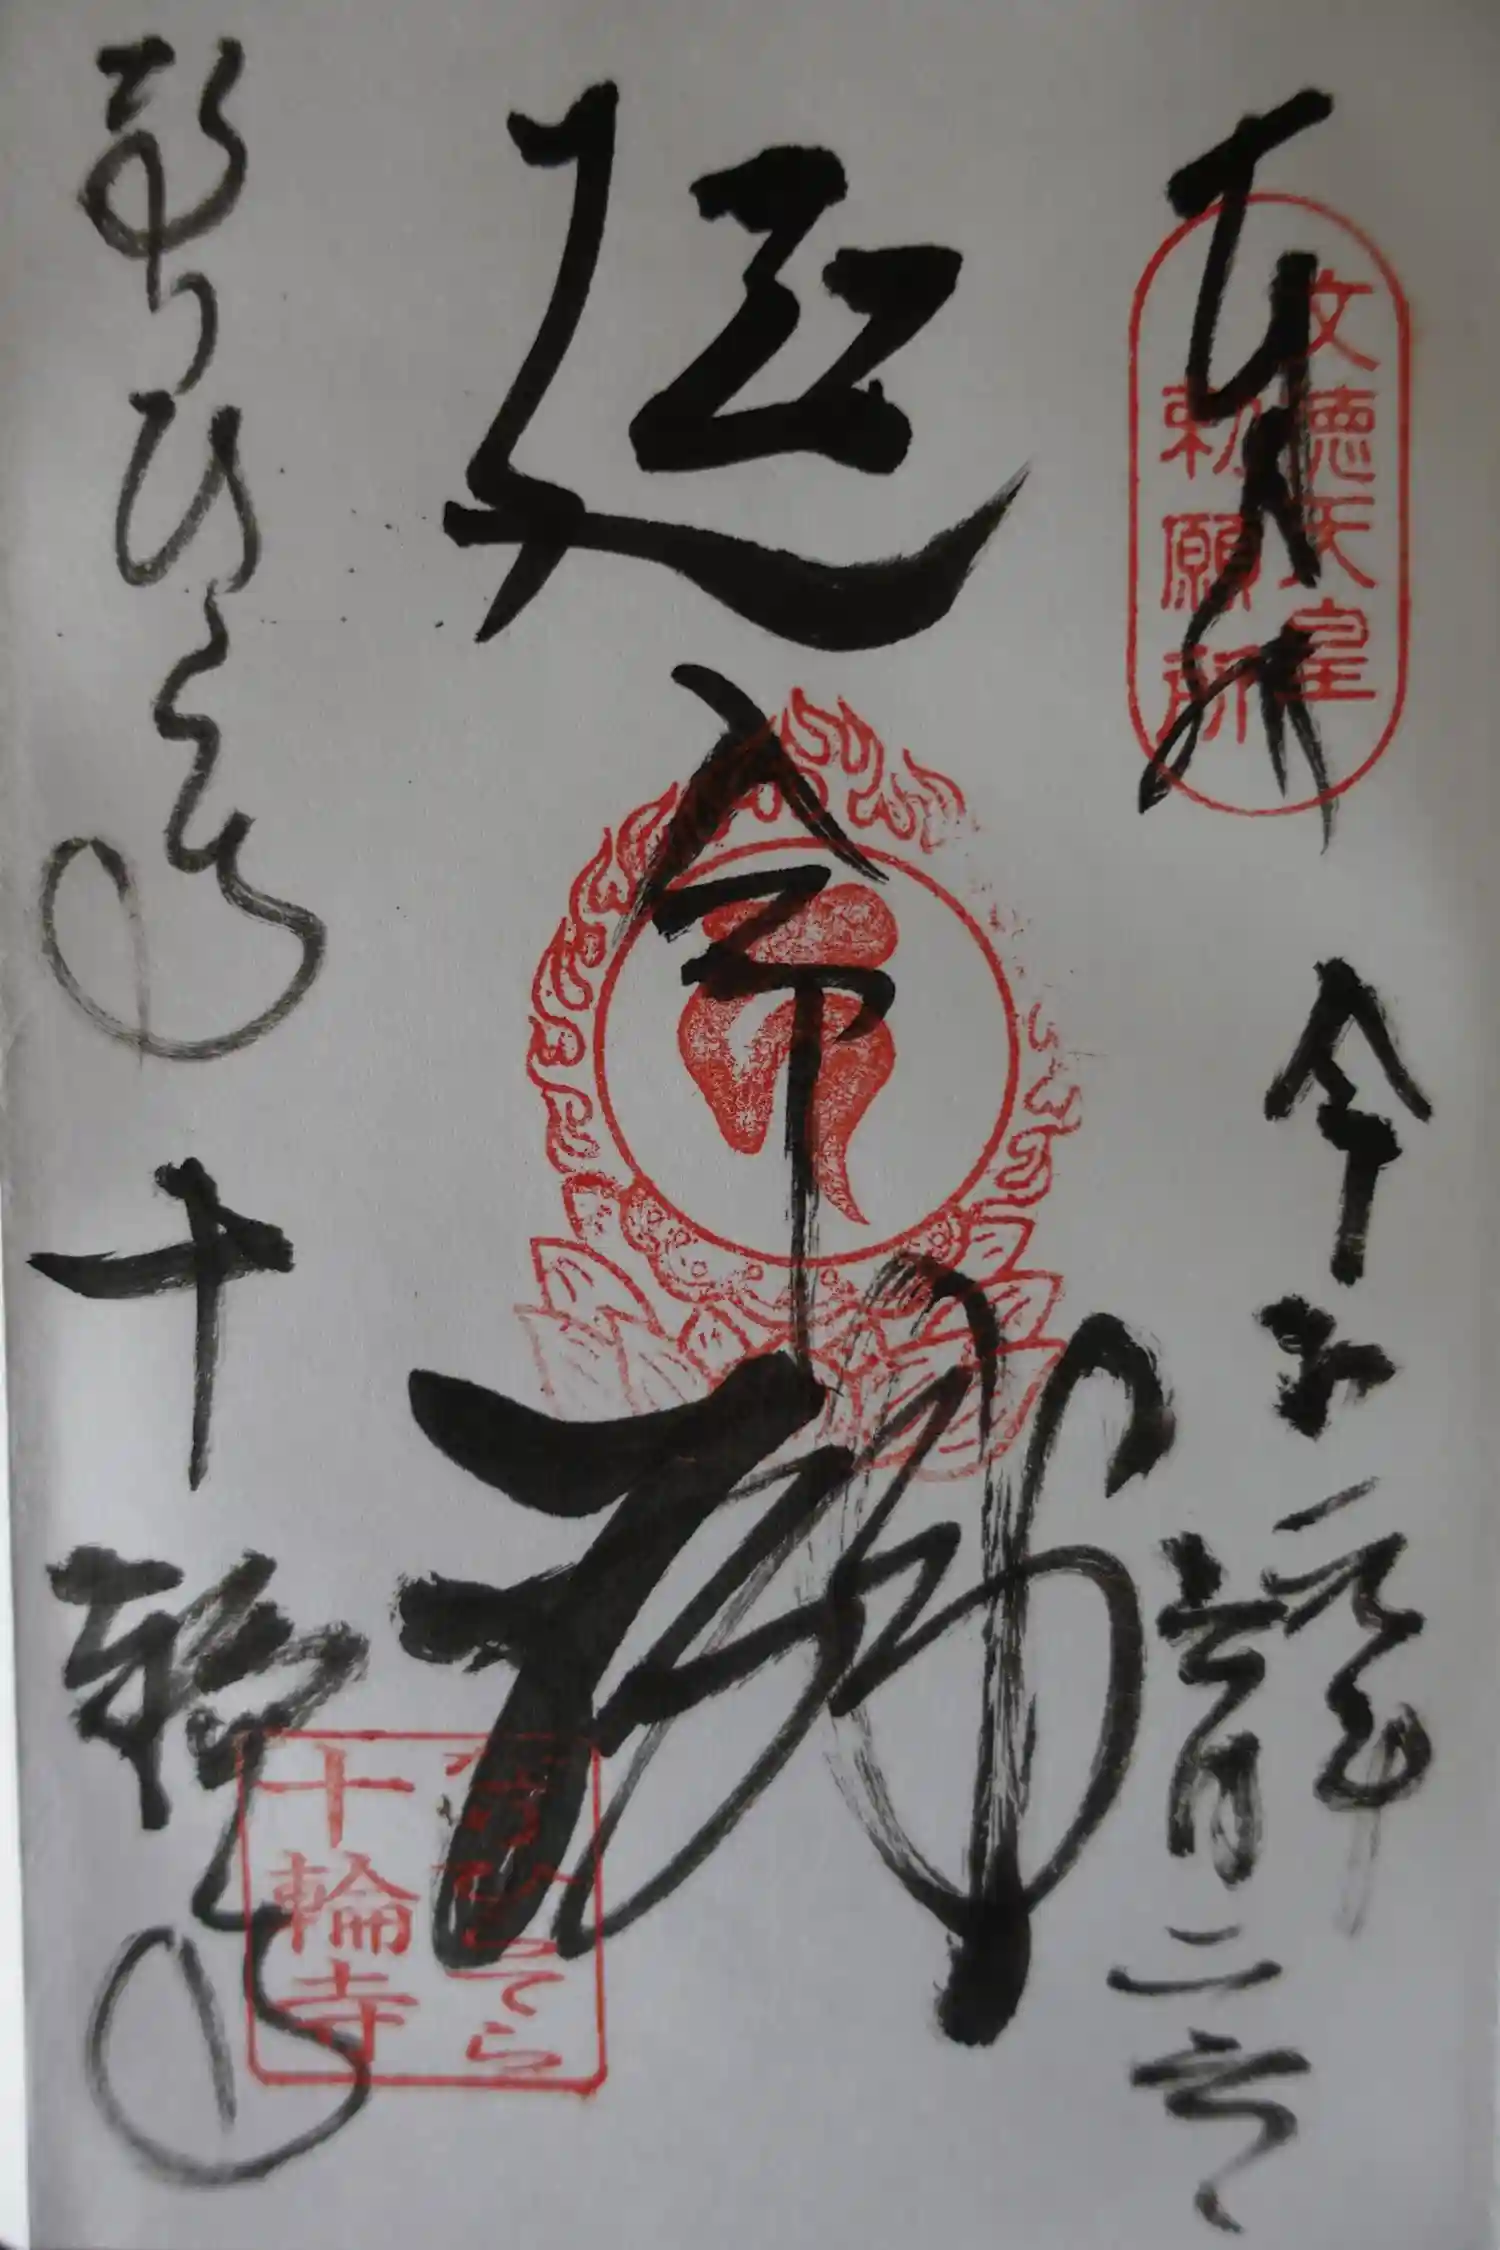 奉拝
文徳天皇
勅願所
令和二
月二六
延命
なりひら寺
十輪寺
なりひらてら
十輪寺